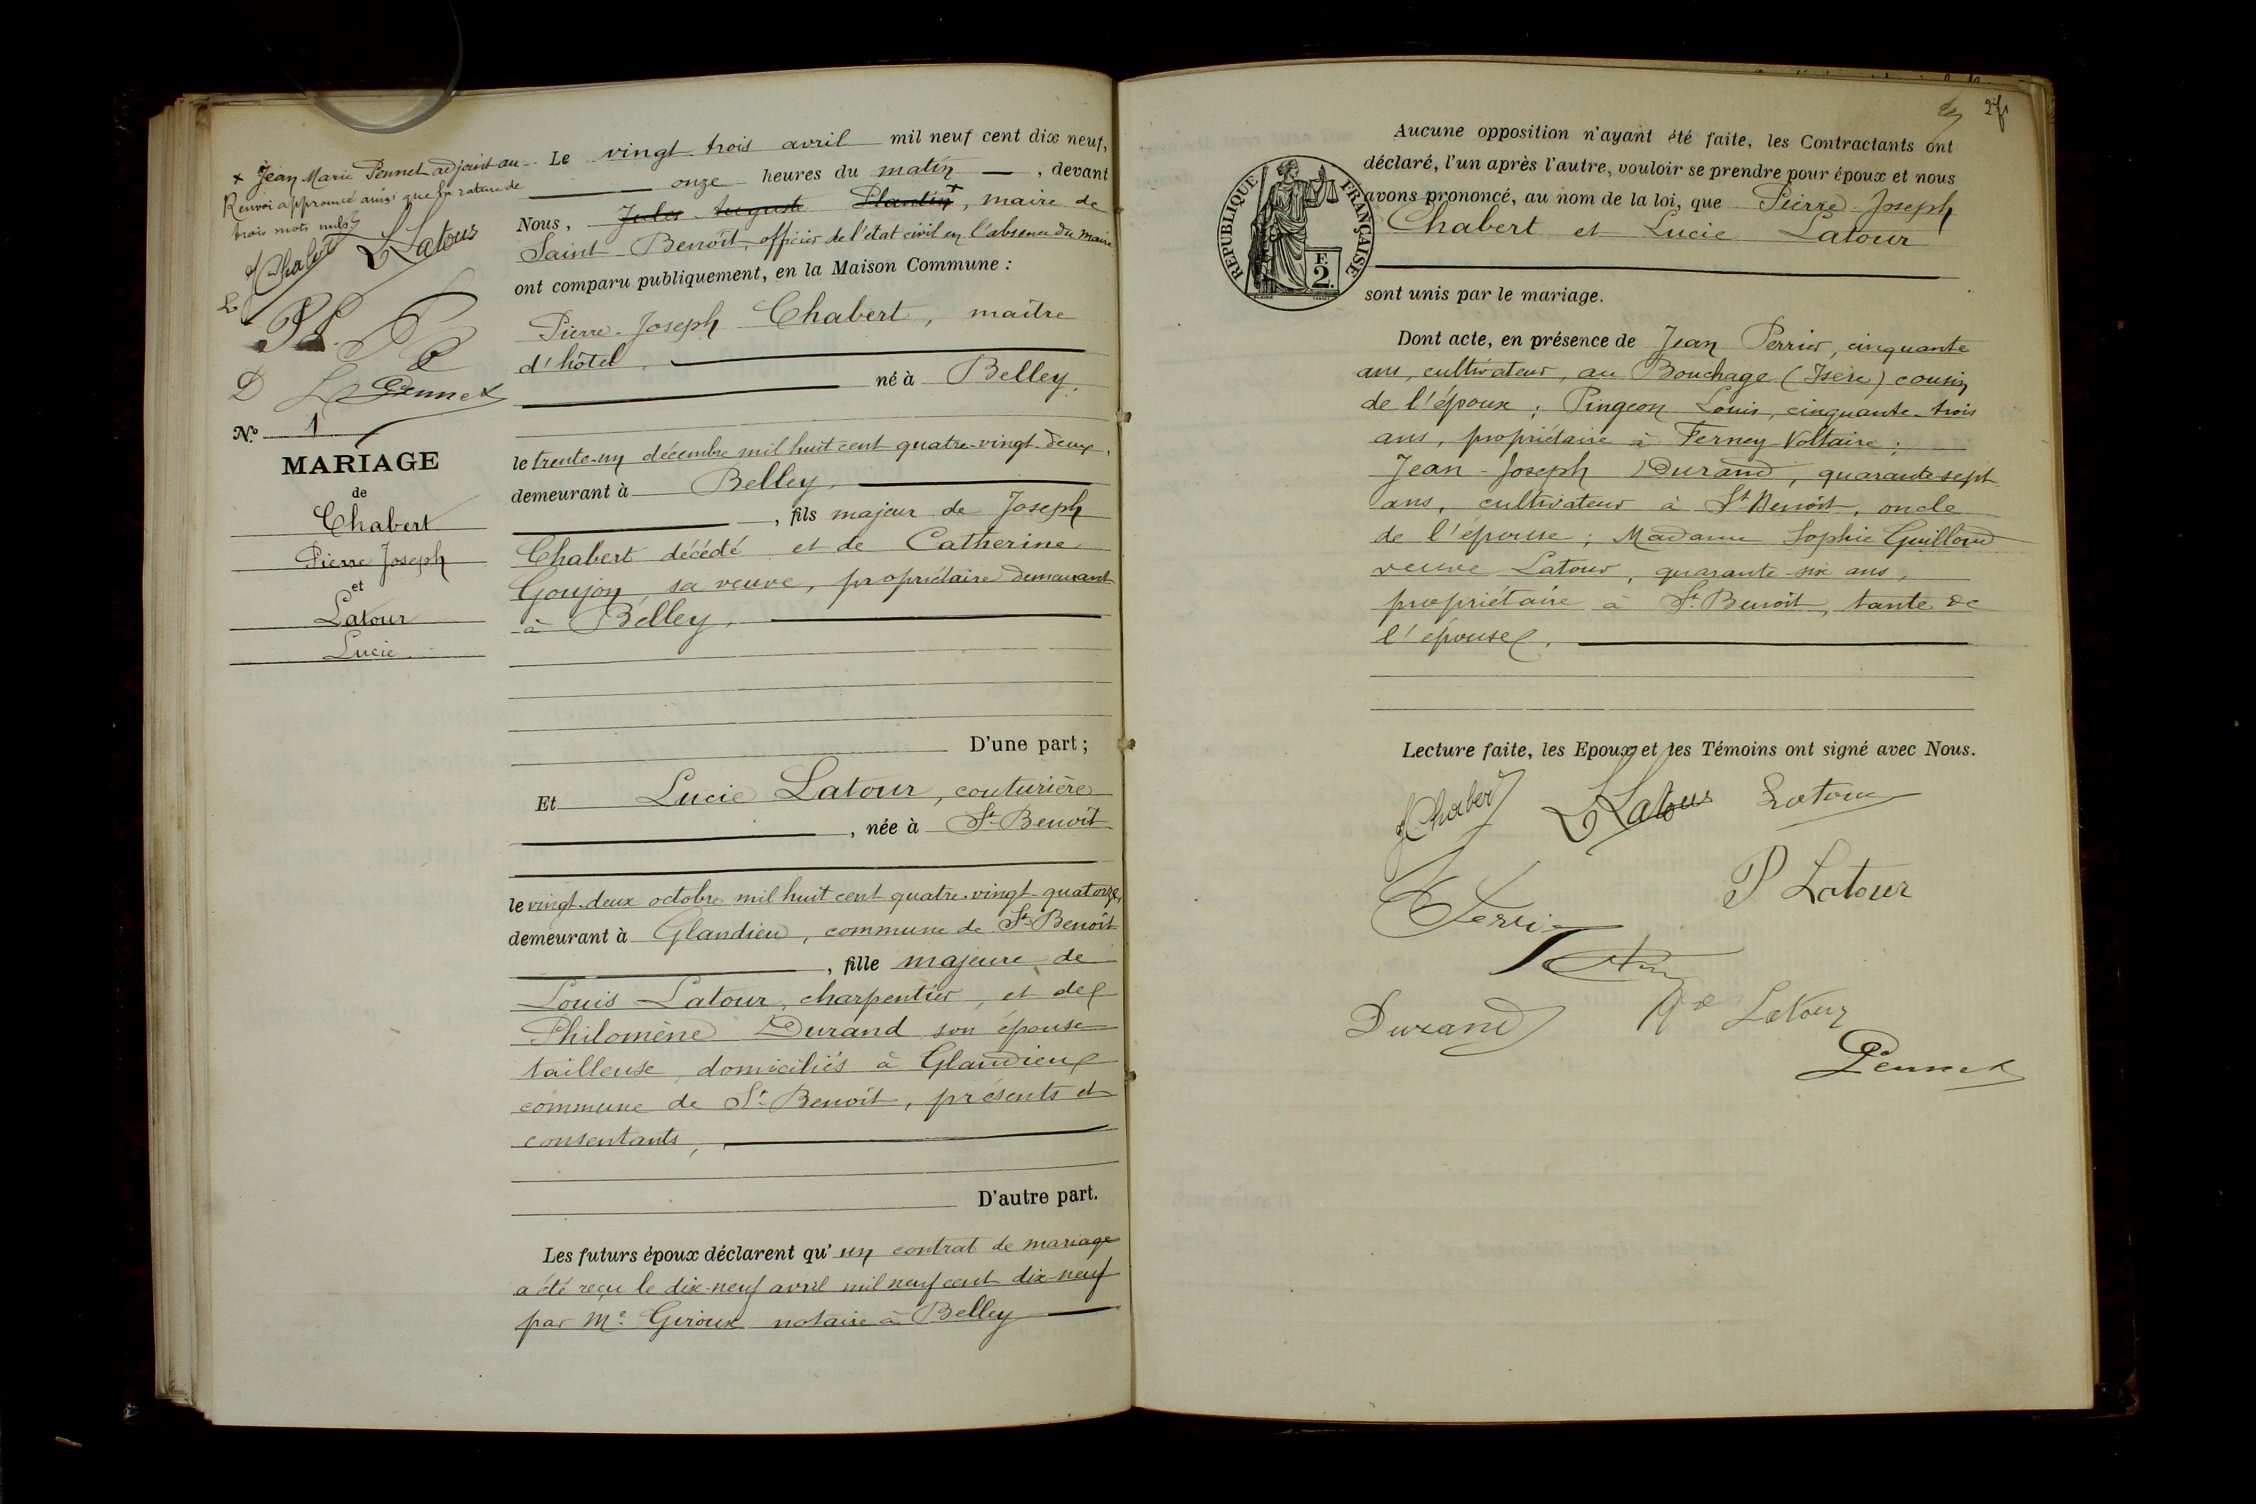 + Jean Marie Pennet adjoint au
Renvoi approuvé ainsi que la rature de
trois mots nuls
J Chabert L Latour
L
PL.
D Pennet
N.º 1
MARIAGE
de
Chabert
Pierre Joseph
et
Latour
Lucie
Le vingt trois avril mil neuf cent dix neuf,
onze heures du matin, devant
Nous, Jules Auguste Plantin +, maire de
Saint-Benoît, officier de l'état civil en l'absence du maire
ont comparu publiquement, en la Maison Commune :
Pierre-Joseph Chabert, maître
d'hôtel,
né à Belley,
le trente-un décembre mil huit cent quatre-vingt-deux,
demeurant à Belley,
, fils majeur de Joseph
Chabert décédé et de Catherine
Goujon, sa veuve, propriétaire demeurant
à Belley,
D'une part ;
Et Lucie Latour, couturière
, née à St Benoît
le vingt-deux octobre mil huit cent quatre-vingt-quatorze,
demeurant à Glandieu, commune de St Benoît
, fille majeure de
Louis Latour, charpentier, et de
Philomène Durand son épouse
tailleuse, domiciliés à Glandieu
commune de St Benoît, présents et
consentants,
D'autre part.
Les futurs époux déclarent qu'un contrat de mariage
a été reçu le dix-neuf avril mil neuf cent dix-neuf
par Me Giroux notaire à Belley
27
Aucune opposition n'ayant été faite, les Contractants ont
déclaré, l'un après l'autre, vouloir se prendre pour époux et nous
avons prononcé, au nom de la loi, que Pierre-Joseph
Chabert et Lucie Latour
RÉPUBLIQUE FRANÇAISE
F.
2.
sont unis par le mariage.
Dont acte, en présence de Jean Perrier, cinquante
ans, cultivateur, au Bouchage (Isère) cousin
de l'époux ; Pingeon Louis, cinquante-trois
ans, propriétaire à Ferney-Voltaire ;
Jean-Joseph Durand, quarante-sept
ans, cultivateur à St Benoît, oncle
de l'épouse ; Madame Sophie Guilloud
veuve Latour, quarante-six ans,
propriétaire à St Benoît, tante de
l'épouse.
Lecture faite, les Epoux et les Témoins ont signé avec Nous.
J Chabert L Latour Latour
P Latour
Perrier
Durand Vve Latour
Pennet